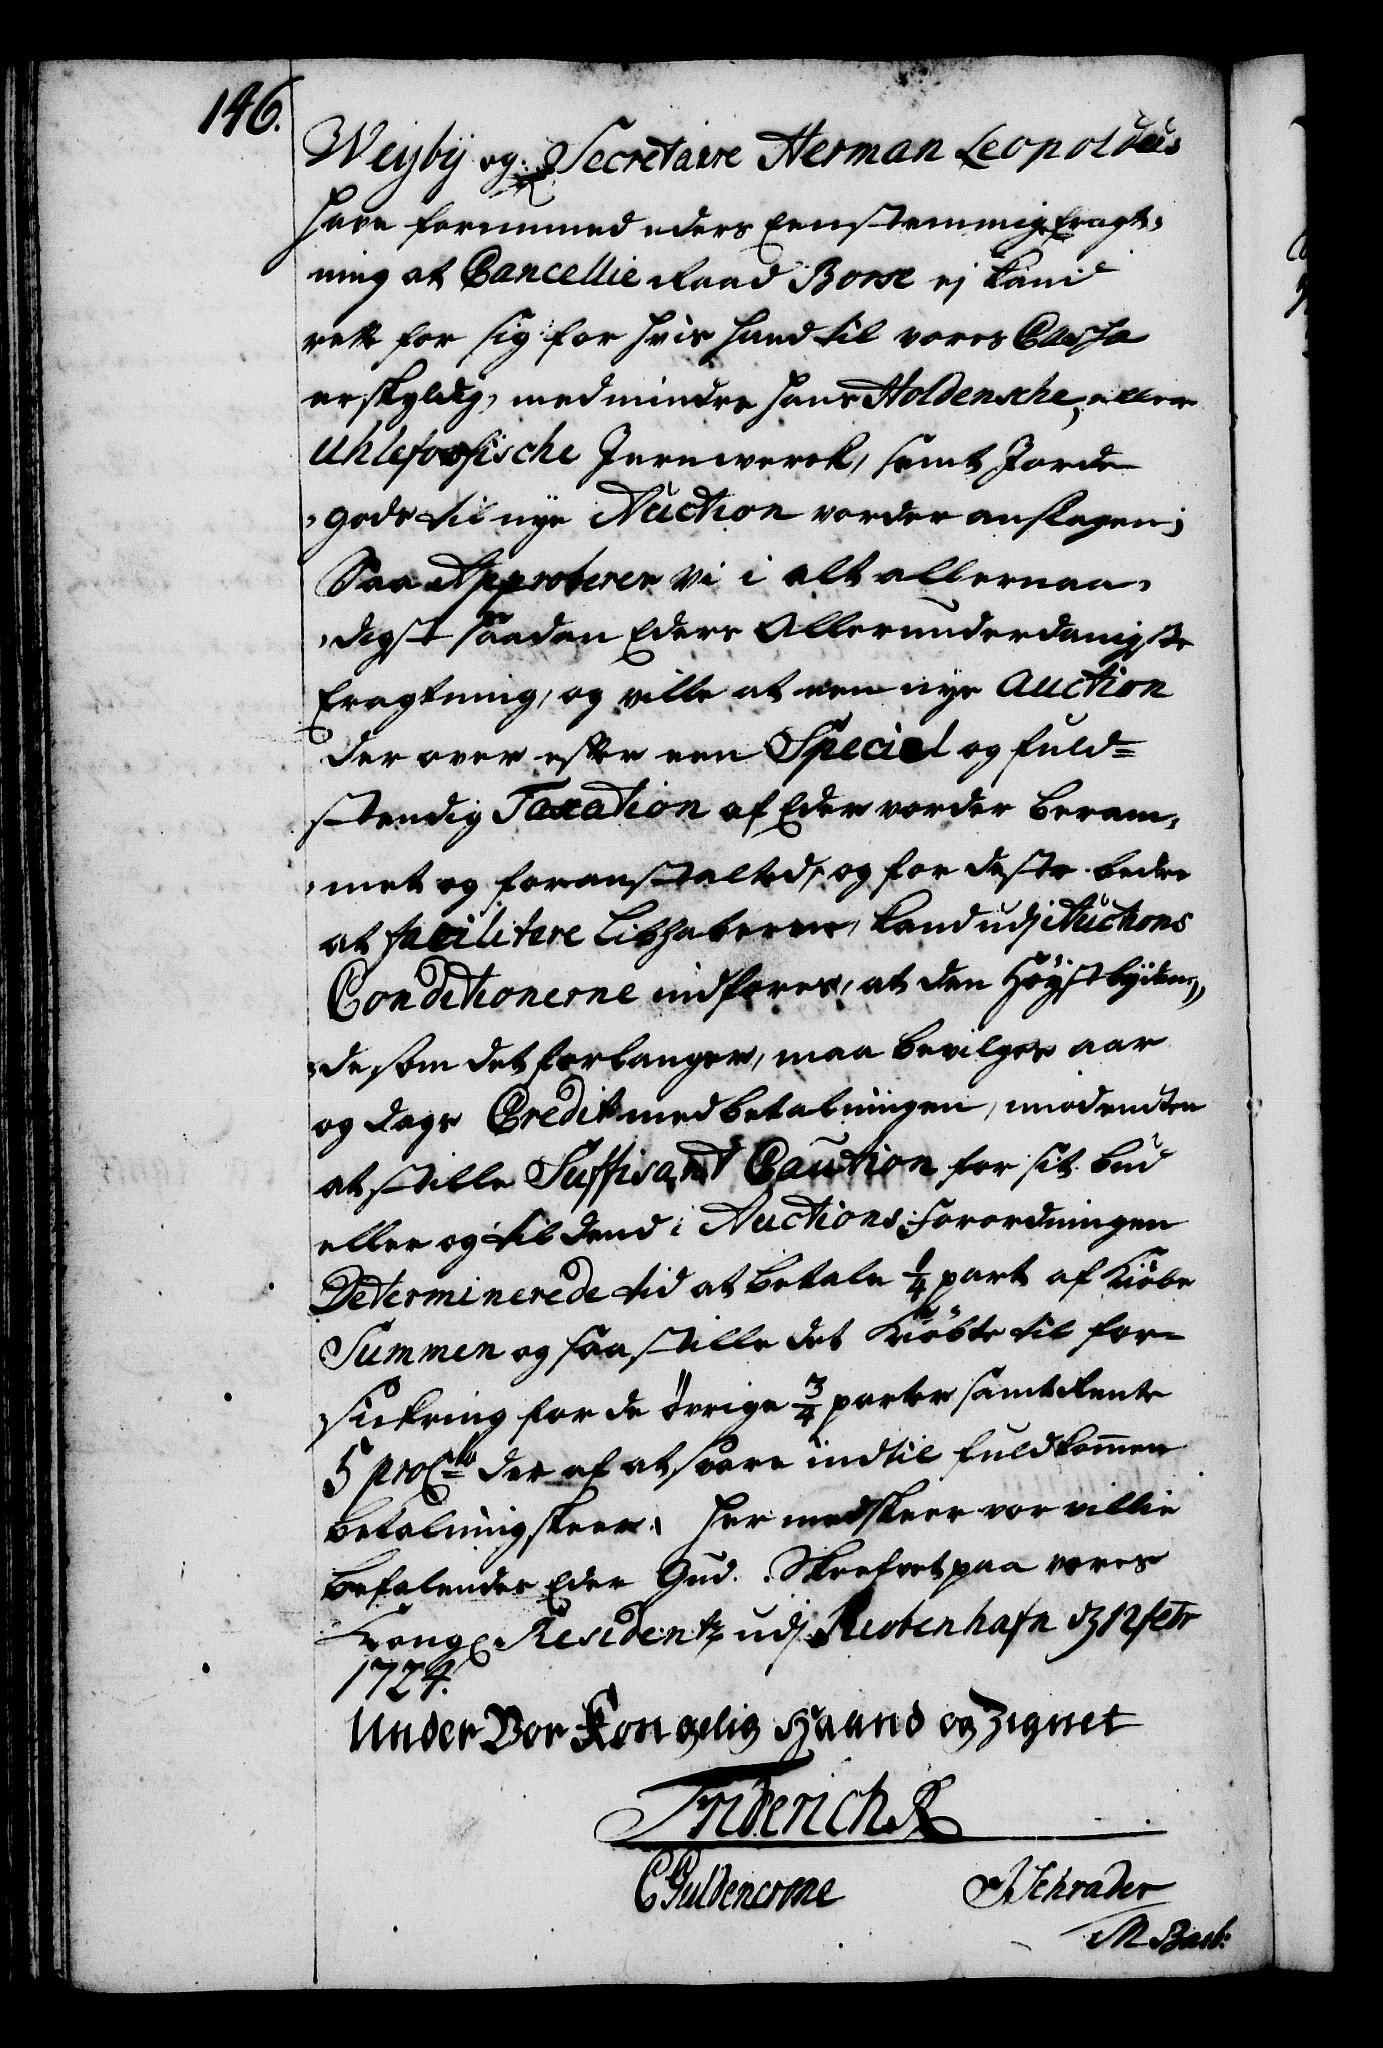 146.
Weyby og Secretaire Herman Leopoldus
have fornummed eders Eenstemmig Eragt,
ning at Cancellie Raad Borse ej kand
rette for sig for hvis hand til vores Cassa
er skyldig, med mindre hans Holdensche, eller
Uhlefossische Jernwerck, samt Jorde
,gods til nye Auction vorder anslagen;
Saa Approberer Vi i alt allernaa,
,digst saadan Eders Allerunderdanigste
Eragtning, og ville at een nye Auction
der over efter een Speciel og fuld=
stendig Taxation af Eder vorder beram,
,met og foranstalted, og for deste bedre
at facilitere Liebhaberne, kand udj Auctions
Conditionerne indføres, at den Høystbyden,
,de som det forlanger, maa bevilges aar
og dags Credit med betalningen, imod enten
at stille Suffisant Caution for sit bud
eller og til dend i Auctions Forordningen
Determinerede tid at betale 1/4 part af Kiøbe
Summen og saa stille det Kiøbte til for-
,sickring for de øvrige 3/4 parter samt Rente
5 proCto der af at svare indtil fuldkommen
betalning skeer. Her med skeer vor villie
Befalendes Eder Gud. Skrefvet paa vores
Kongl Residentz udj Kiøbenhafn d 12 febr
1724.
Under Vor Kongelig Haand og Zignet
Friderich R
C Guldencrone J Schrader
M Basb: